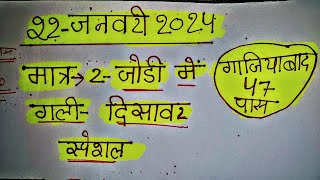 २२-जनवरी 2024
मात्र→ 2- जोडी में
गली- दिसावर
स्पेशल
गाजियाबाद
47
पास